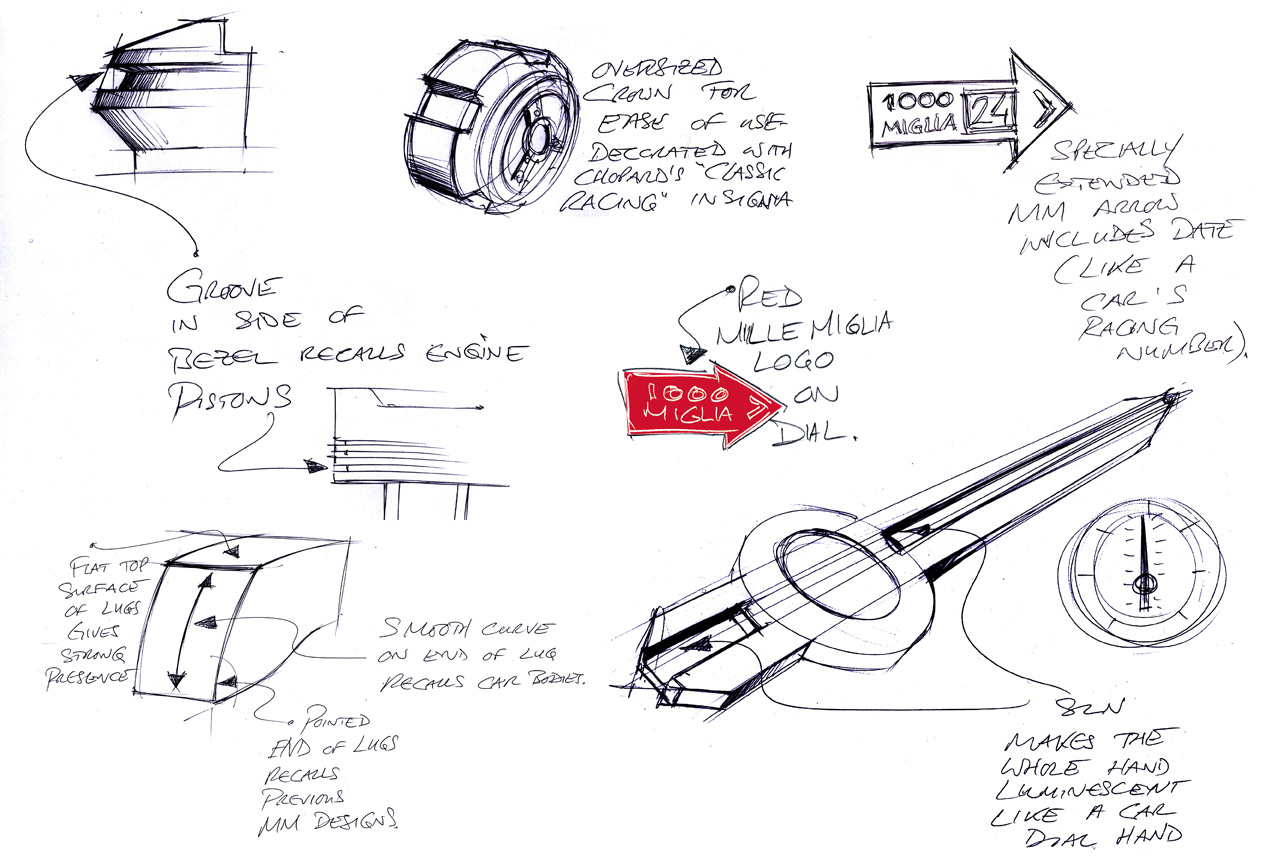 OVERSIZED
CROWN FOR
EASE OF USE.
DECORATED WITH
CHOPARD'S "CLASSIC
RACING" INSIGNIA
1000
MIGLIA
24
SPECIALLY
EXTENDED
MM ARROW
INCLUDES DATE
(LIKE A
CAR'S
RACING
NUMBER).
GROOVE
IN SIDE OF
BEZEL RECALLS ENGINE
PISTONS
RED
MILLE MIGLIA
LOGO
ON
DIAL.
1000
MIGLIA
FLAT TOP
SURFACE
OF LUGS
GIVES
STRONG
PRESENCE
SMOOTH CURVE
ON END OF LUG
RECALLS CAR BODIES.
POINTED
END OF LUGS
RECALLS
PREVIOUS
MM DESIGNS.
SLN
MAKES THE
WHOLE HAND
LUMINESCENT
LIKE A CAR
DIAL HAND